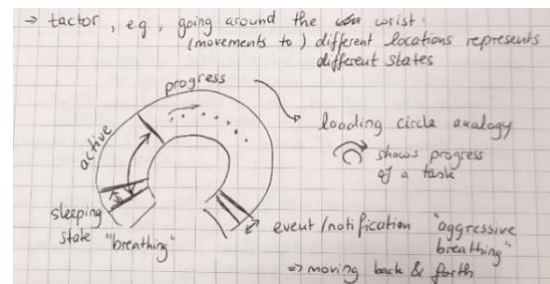 → tactor, e.g. going around the wrist:
(movements to) different locations represents
different states
progress
active
loading circle analogy
shows progress
of a task
sleeping
state "breathing"
event/notification "aggressive
breathing"
⇒ moving back & forth